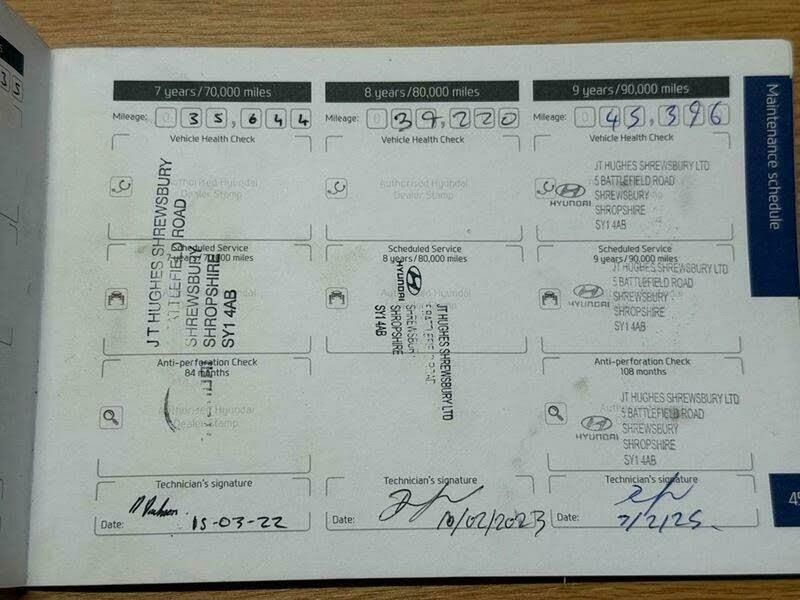 7 years/70,000 miles
Mileage: 0 35,644
Vehicle Health Check
Authorised Hyundai
Dealer Stamp
JT HUGHES SHREWSBURY
BATTLEFIELD ROAD
SHREWSBURY
SHROPSHIRE
SY1 4AB
Scheduled Service
7 years/70,000 miles
Anti-perforation Check
84 months
Authorised Hyundai
Dealer Stamp
Technician's signature
Date: 15-03-22
8 years/80,000 miles
Mileage: 0 39,220
Vehicle Health Check
Authorised Hyundai
Dealer Stamp
Scheduled Service
8 years/80,000 miles
HYUNDAI
JT HUGHES SHREWSBURY LTD
SHREWSBURY
SHROPSHIRE
SY1 4AB
Technician's signature
Date: 10/02/2023
9 years/90,000 miles
Mileage: 0 45,396
Vehicle Health Check
HYUNDAI
JT HUGHES SHREWSBURY LTD
5 BATTLEFIELD ROAD
SHREWSBURY
SHROPSHIRE
SY1 4AB
Scheduled Service
9 years/90,000 miles
HYUNDAI
JT HUGHES SHREWSBURY LTD
5 BATTLEFIELD ROAD
SHREWSBURY
SHROPSHIRE
SY1 4AB
Anti-perforation Check
108 months
HYUNDAI
JT HUGHES SHREWSBURY LTD
5 BATTLEFIELD ROAD
SHREWSBURY
SHROPSHIRE
SY1 4AB
Technician's signature
Date: 7/2/25
Maintenance schedule